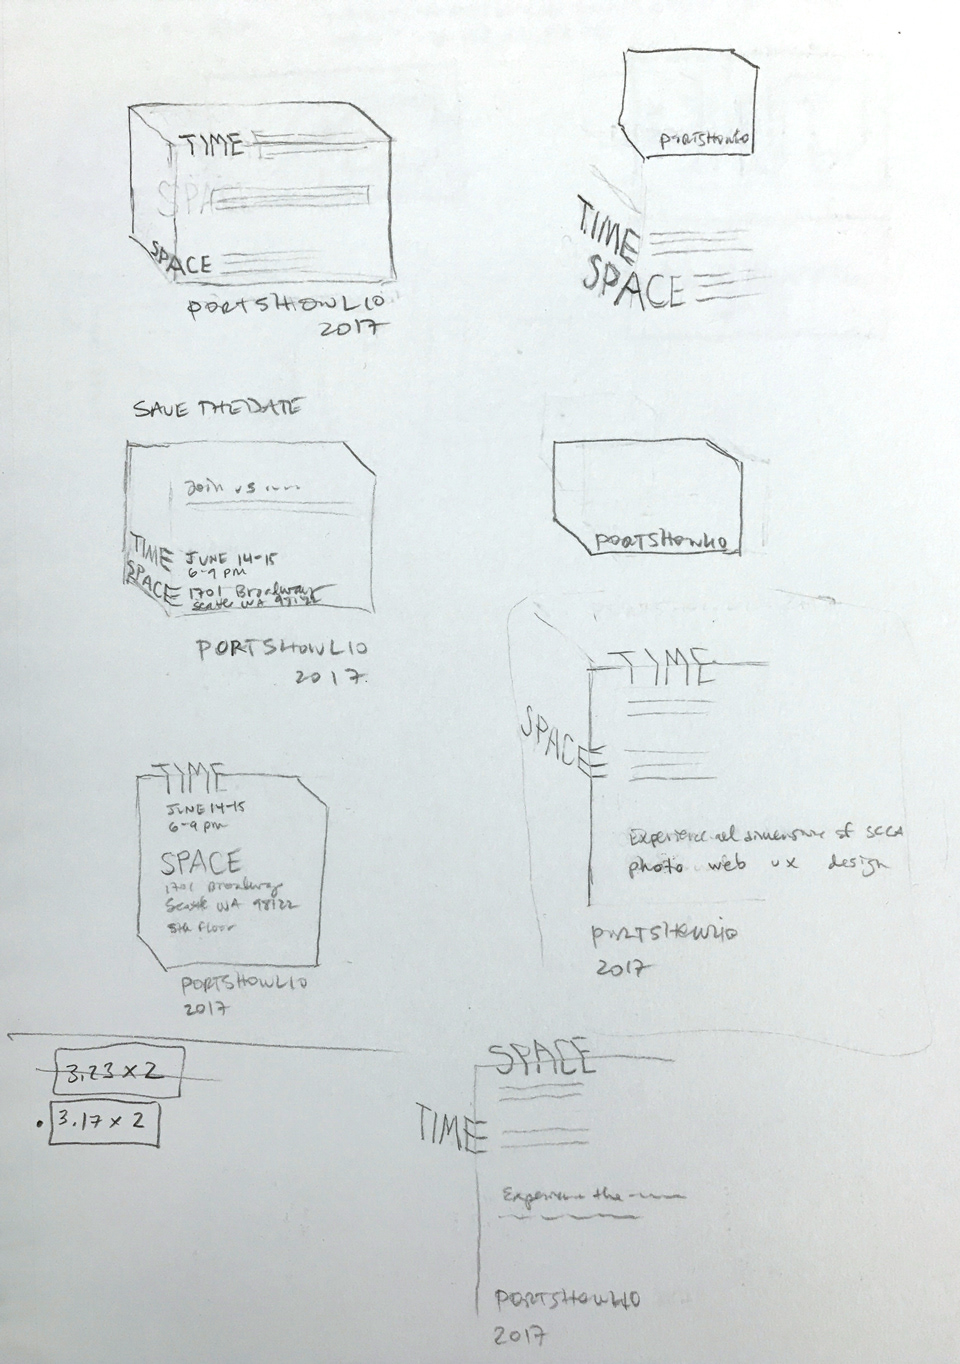 TIME
SPACE
SPACE
PORTSHOWLIO
2017
PORTSHOWLIO
TIME
SPACE
SAVE THE DATE
Join us
TIME JUNE 14-15
6-9 PM
SPACE 1701 Broadway
Seattle WA 98122
PORTSHOWLIO
2017
PORTSHOWLIO
TIME
SPACE
Experience dimensions of SCCA
photo web ux design
PORTSHOWLIO
2017
TIME
JUNE 14-15
6-9 pm
SPACE
1701 Broadway
Seattle WA 98122
5th Floor
PORTSHOWLIO
2017
3.23 x 2
3.17 x 2
SPACE
TIME
Experience the
PORTSHOWLIO
2017